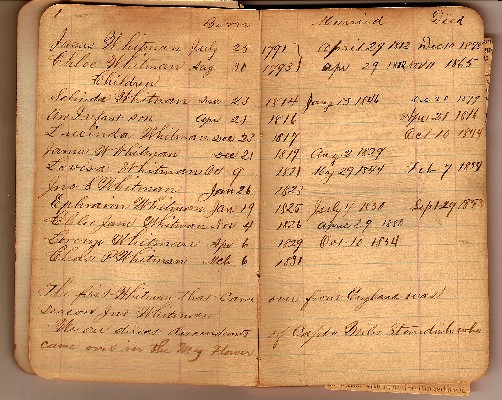 Born Married Died
James Whitman July 25 1791 April 29 1812 Dec 10
Chloe Whitman Aug 30 1793 Apr 29 1812 1865
Children
Selinda Whitman Dec 23 1814 Jany 13
An Infant son Apr 21 1816 Apr 21 1816
Lucinda Whitman Dec 23 1817 Oct 10
James W Whitman Dec 21 1819 Aug 2
Lovisa Whitman Oct 9 1821 May 29 1844 Feb 7
Jno S Whitman Jan 26 1823
Ephraim Whitman Jan 19 1825 July 7 1850 Sept 29 1853
Chloe Jane Whitman Nov 4 1826 June 29 1850
Lorenzo Whitman Apr 6 1829 Oct 10 1854
Whitman Mch 6 1831
The first Whitman that Came over from England was
Deacon Jno Whitman
We are direct descendants of Capt Miles Standish who
came over in the May Flower